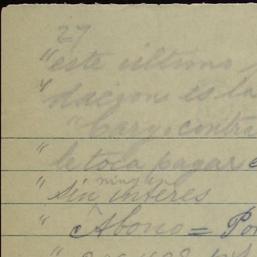 27
"este ultimo
"dacion es la
"Cargo contra
"le toca pagar
" sin ningun interes
" Abono = Po